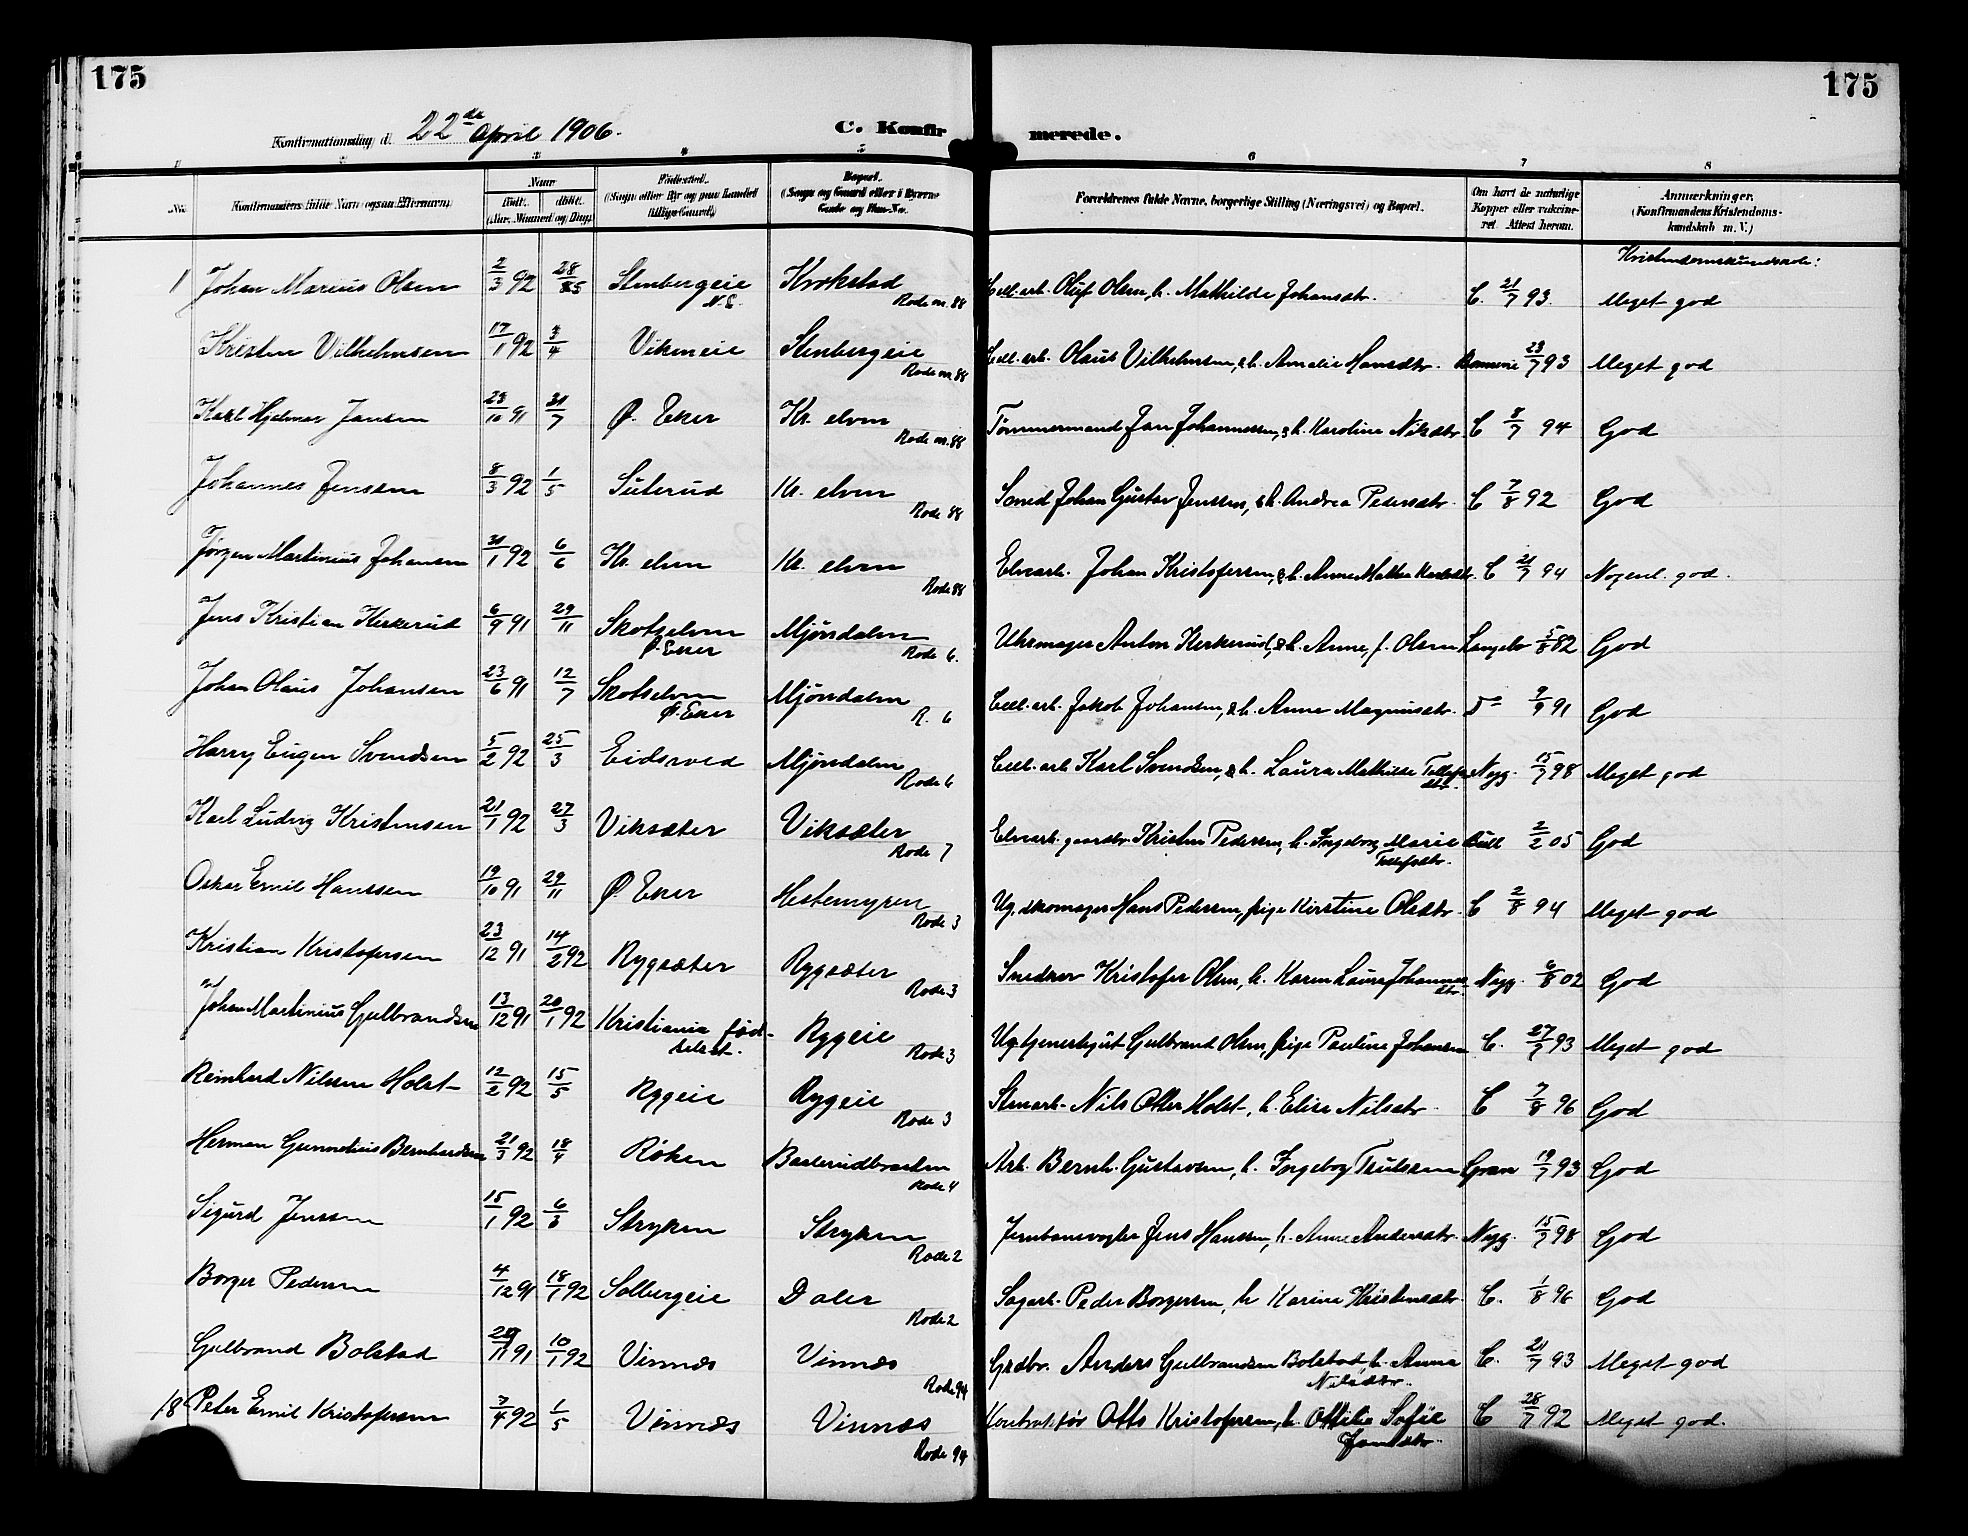 175
175
Konfirmationsdag d. 22de April 1906.
C. Konfirmerede.
1 2 3 4 5 6 7 8
No. Konfirmandens fulde Navn (ogsaa Efternavn) Naar født. døbt. (Aar, Maaned og Dag) Fødested. (Sogn eller By og paa Landet tillige Gaard) Bopæl. (Sogn og Gaard eller i Byerne Gade og Hus-No.) Forældrenes fulde Navne, borgerlige Stilling (Næringsvei) og Bopæl. Om havt de naturlige Kopper eller vakcineret. Attest herom. Anmærkninger. (Konfirmandens Kristendomskundskab m. V.)
Kristendomskundskab:
1 Johan Marius Olsen 2/3 92 28/ Stenbergeie N.E. Krokstad Rode nr. 88 Cell. arb. Oluf Olsen, h. Mathilde Johansdtr. C. 21/7 93. Meget god
Kristen Vilhelmsen 17/1 92 3/4 Vikeneie Stenbergeie Rode nr. 88 Cell. arb. Olaus Vilhelmsen, & h. Amalie Hansdtr. 23/7 93 Meget god
Karl Hjelmar Jansen 23/10 91 31/7 Ø. Eker Kr. elven Rode nr. 88 Tømmermand Jan Johannessen, & h. Karoline Nilsdtr. C 8/7 94 God
Johannes Jenssen 8/3 92 1/5 Suterud Kr. elven Rode 88 Smed Johan Gustav Jenssen, & h. Andrea Pedersdtr. C 7/8 92 God
Jørgen Martinius Johansen 31/1 92 6/6 Kr. elven Kr. elven Rode 88 Elvearb. Johan Kristofersen, & h. Anne Mathea C 21/7 94 Nogenl. god.
Jens Kristian Kerkerud 6/9 91 29/11 Skotselven Ø. Eker Mjøndalen Rode 6. Uhrmager Anton Kerkerud, & h. Anne, f. Olsen Langebr 5/8 82 God
Johan Olaus Johansen 23/6 91 12/7 Skotselven Ø. Eker Mjøndalen R. 6 Cell. arb. Jakob Johansen, & h. Anne Magnusdtr. Do 9/9 91 God
Harry Eugen Svendsen 5/2 92 25/3 Eidsvold Mjøndalen Rode 6 Cell. arb Karl Svendsen, & h. Laura Mathilde Tollefsdtr. Nyg. 15/7 98 Meget god
Karl Ludvig Kristensen 21/1 92 27/3 Viksæter Viksæter Rode 7 Elvearb. gaardbr. Kristen Pedersen, h. Ingeborg Marie Tollefsdtr. Bull 2/2 05 God
Oskar Emil Hanssen 19/10 91 29/11 Ø. Eker Hestemyren Rode 3 Ug. skomager Hans Pedersen, pige Kirstine Olsdtr. C 2/8 94 Meget god
Kristian Kristofersen 23/12 91 14/2 92 Rygsæter Rygsæter Rode 3 Snedker Kristofer Olsen, h. Karen Laura Johannesdtr. Nyg. 6/8 02 God
Johan Martinius Gulbrandsen 13/12 91 20/1 92 Kristiania fødselsst. Rygeie Rode 3 Ug. tjenestegut Gulbrand Olsen, pige Pauline Johansen C. 27/7 93 Meget god
Reinhard Nilssen Holst 12/2 92 15/5 Rygeie Rygeie Rode 3 Stenarb. Nils Otter Holst, h. Elise Nilsdtr. C 7/8 96 God
Herman Gunnelius Bernhardsen 21/3 92 18/4 Røken Basserudbraaten Rode 4 Arb. Bernh. Gustavsen, h. Ingeborg Trulssen Gran 19/7 93 God
Sigurd Jenssen 15/1 92 6/3 Stryken Stryken Rode 2 Jernbanevogter Jens Hanssen, h. Anne Andersdtr. Nyg. 15/7 98 God
Borger Pedersen 4/12 91 18/1 92 Solbergeie Daler Rode 2 Sagarb. Peder Borgersen, h Karine Kristensdtr. C. 1/8 96 God
Gulbrand Bolstad 11 91 10/1 92 Vinnæs Vinnæs Rode 94 Grdbr. Anders Gulbrandsen Bolstad, h. Anna Nilsdtr. C. 21/7 93 Meget god
18 Peter Emil Kristofersen 3/4 92 1/5 Vinnæs Vinnæs Rode 94 Kontraktør Otto Kristofersen, h. Ottilie Sofie Jensdtr. C 28/7 92 Meget god.